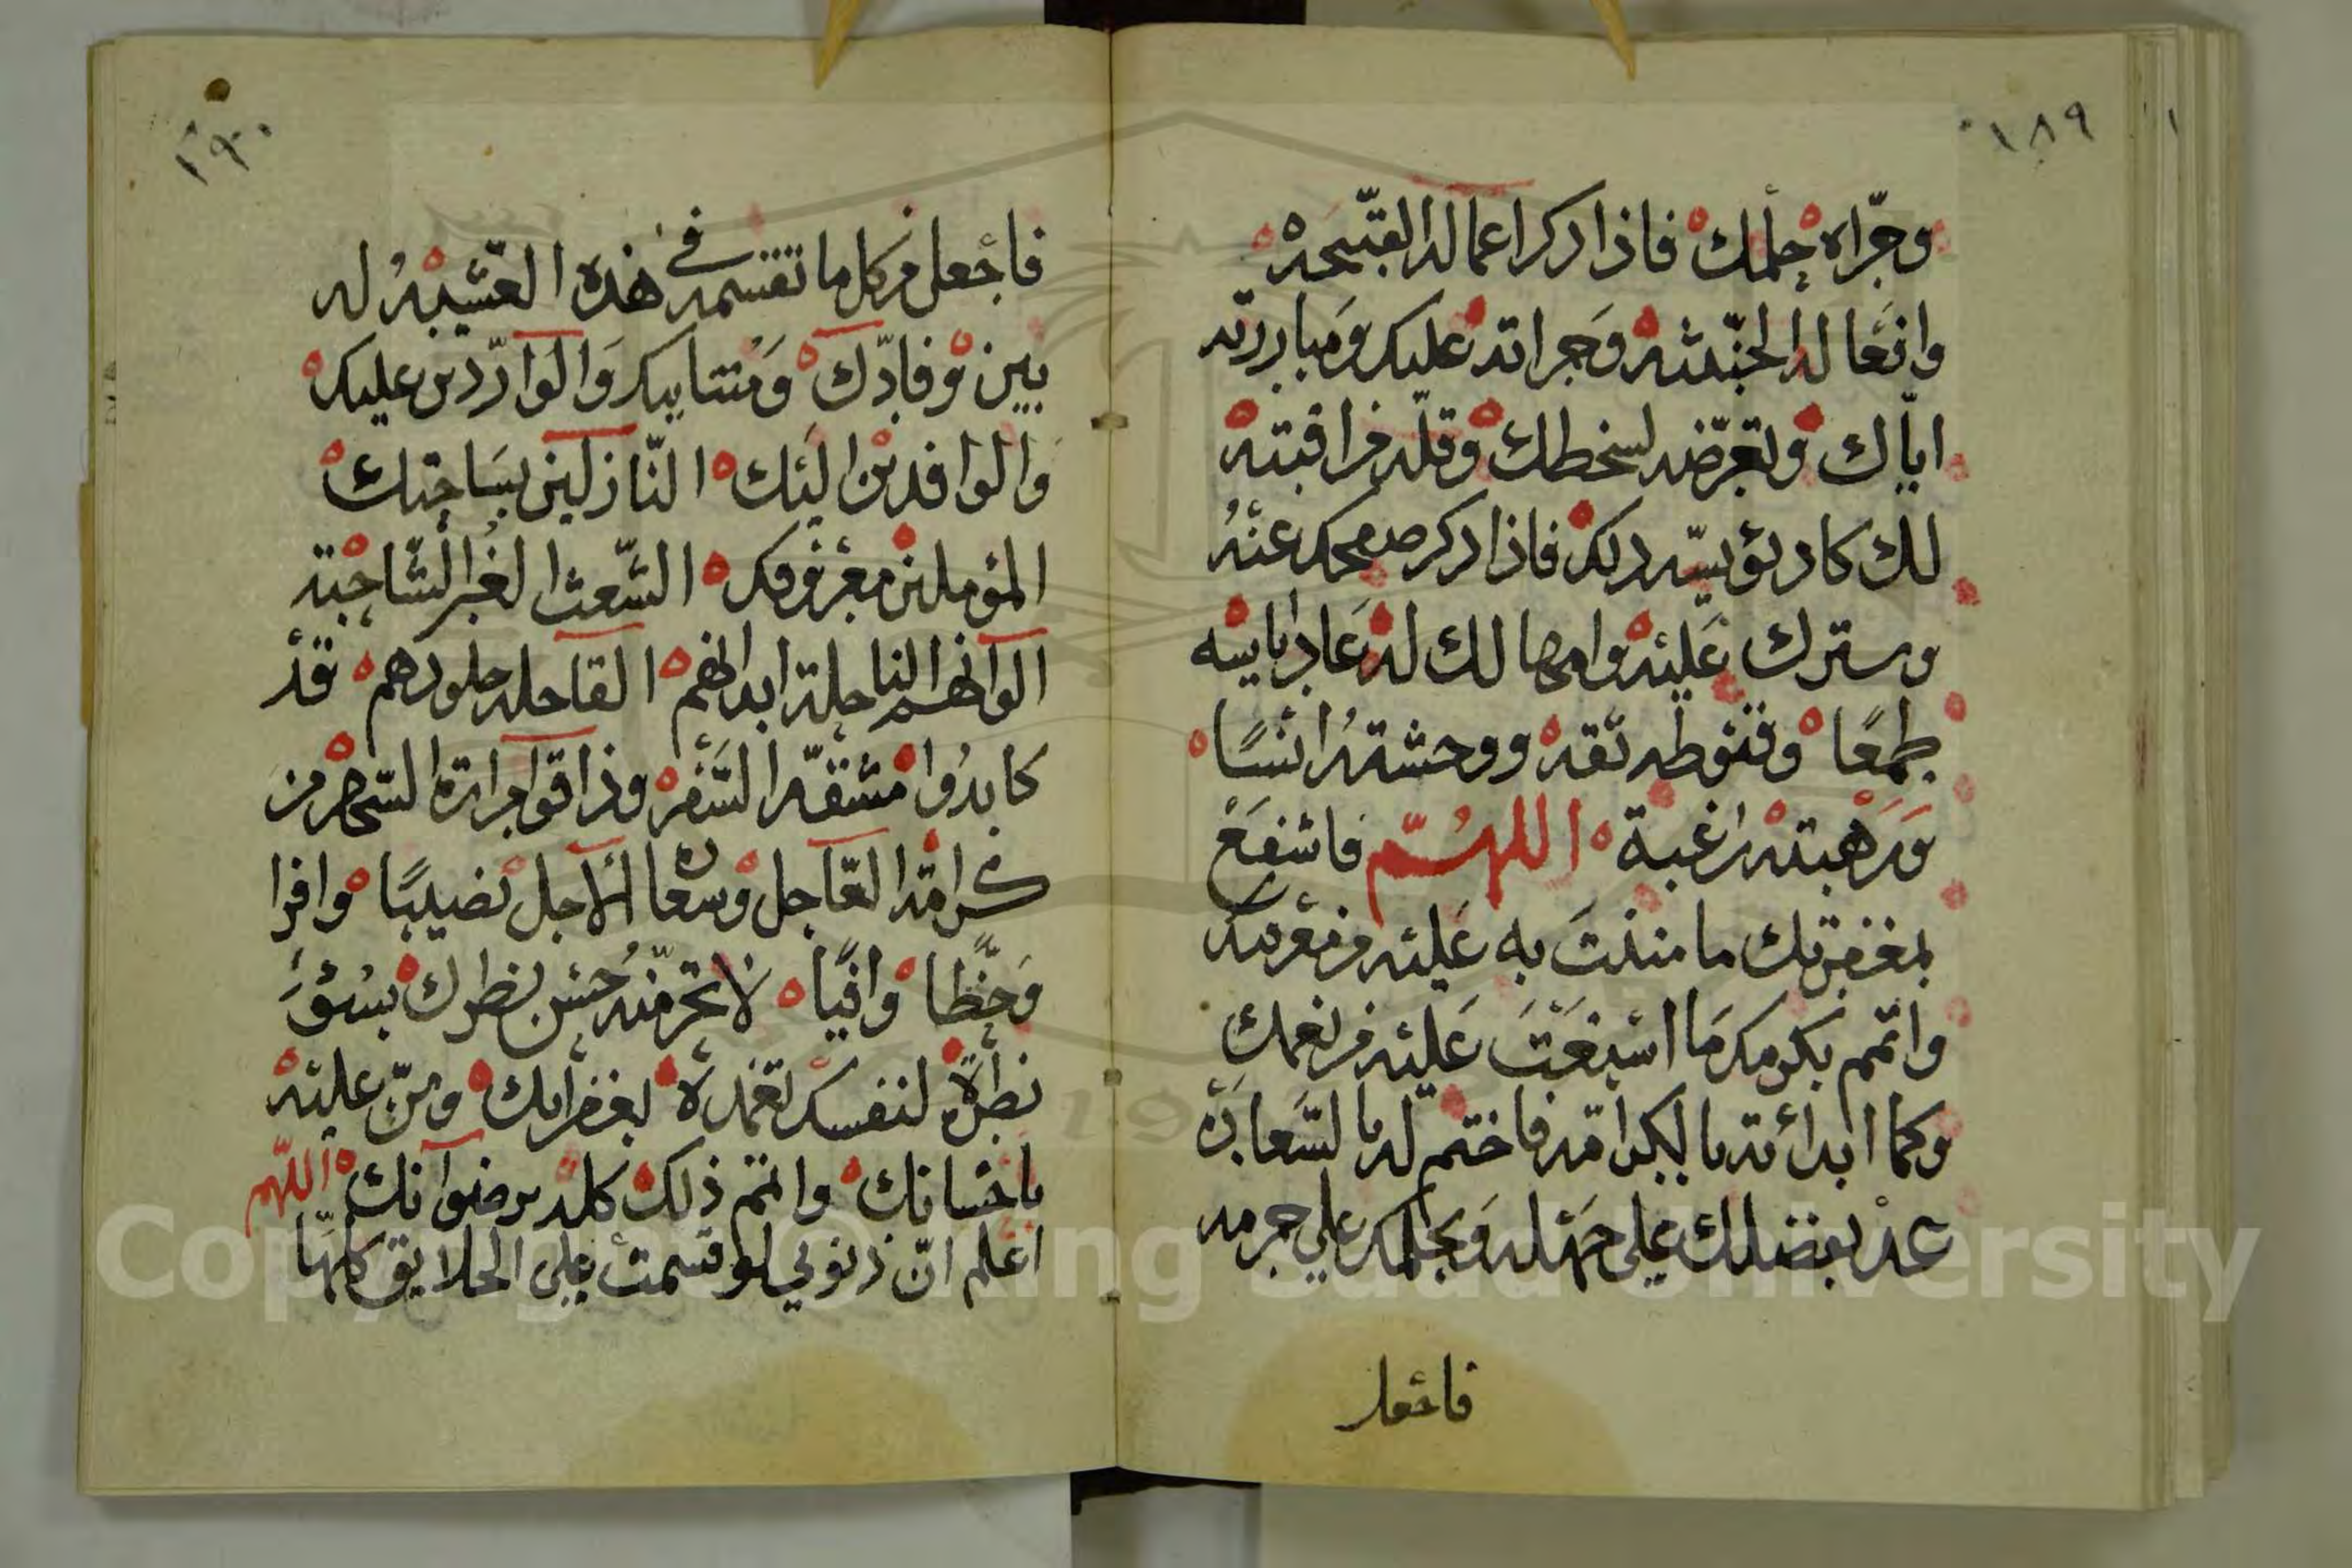 ١٨٩
وجرّاه حلمك فاذا ذكر اعماله القبيحه
وافعاله الخبيثه وجراته عليك ومبارزته
اياك وتعرّضه لسخطك وقله مراقبته
لك كاد يؤيسه ذلك فاذا ذكر صفحك عنه
وسترك عليه وامهالك له عاد اياسه
طمعًا وقنوطه ثقه ووحشته انسًا
ورهبته رغبة اللهم فاشفع
بمغفرتك ما مننت به عليه من معرفتك
واتمم بكرمك ما اسبغت عليه من نعمك
وكما ابدأته بالكرامه فاختم له بالسعاده
عد بفضلك على جهله وبحلمك علي جرمه
فاجعل
١٩٠
فاجعل من كل ما تقسمه في هذه العشيه له
بين وفادك ومنتابيك والواردين عليك
والوافدين اليك النازلين بساحتك
المؤملين معروفك الشعث الغبر الشاحبة
الوانهم الناحلة ابدانهم القاحله جلودهم قد
كابدوا مشقه السفر وذاقوا مرارة السهر من
كرامة العاجل وسعادة الآجل نصيبًا وافرا
وحظًا وافيًا لا تحرمنه حسن نظرك بسوء
نظره لنفسه تغمده بغفرانك ومنّ عليه
باحسانك واتمم ذلك كله برضوانك اللهم
اعلم انّ ذنوبي لو قسمت على الخلايق كلها
Copyright © King Saud University